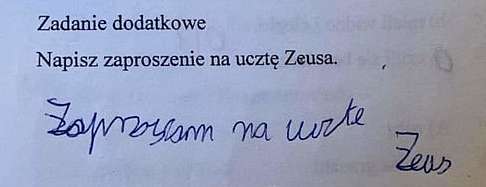 Zadanie dodatkowe
Napisz zaproszenie na ucztę Zeusa.
Zapraszam na uczte
Zeus